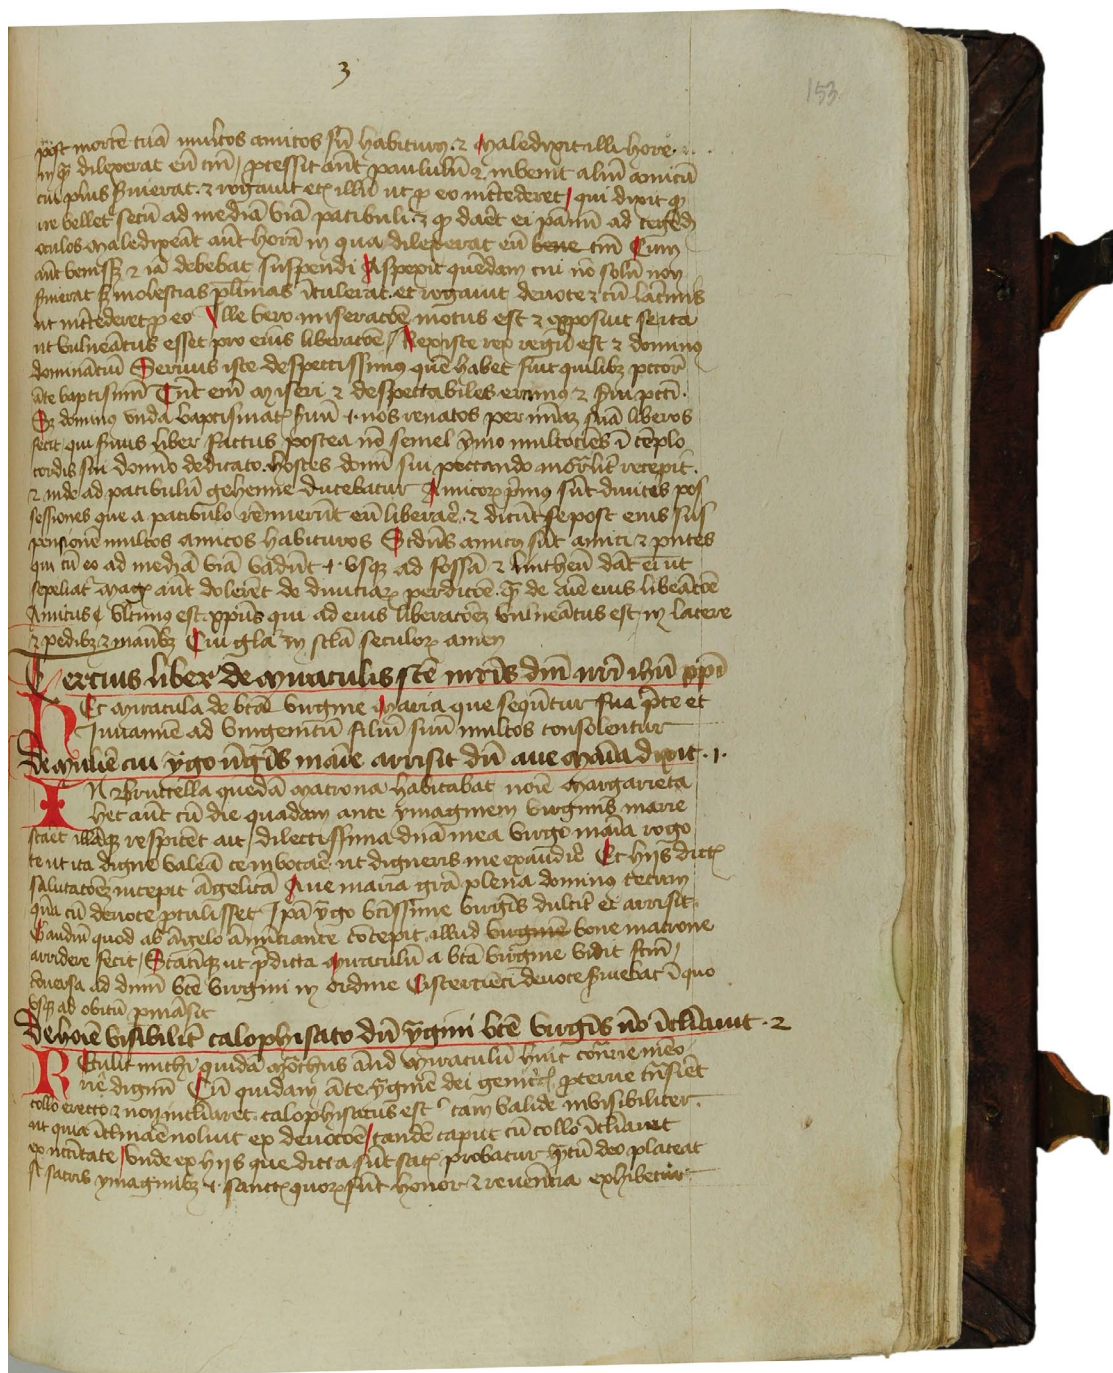 3
153
post mortē tuā multos amicos sū habiturꝰ ⁊ Maledixit illi hore
in qͣ dilexerat eū tm̄ / ꝓcessit aūt paululū ⁊ invenit aliū amicū
cui plus ẜuierat ⁊ rogauit etꝫ illū ut ꝓ eo int̄cederet / qui dixit ꝙ
ire vellet secū ad mediā viā patibuli ⁊ ꝙ daret ei pānū ad tegēdū
oculos Maledixerāt aūt horā in qua dilexerat eū tm̄ Cum
aūt venissꝫ ⁊ iā debebat suspendi Aspexit quēdam cui nō solū non
ẜuierat sꝫ molestias pl̄imas ītulerat et rogauit deuote ⁊ cū lac̄mis
ut int̄cederet ꝓ eo Ille vero miseracōe motus est ⁊ opposuit se ita
ut vulnerātus esset pro eius liberacōe / Rex iste rex regū est ⁊ dominꝰ
dominātiū Seruus iste despectissimꝰ quē habet fuit quilibꝫ pctōr
ān̄te baptismū Tūc em̄ miseri ⁊ despectabiles eramꝰ ⁊ ẜui pctī
Sꝫ dominꝰ vnda baptismatꝫ suū .i. nos renatos per mīam suā liberos
fecit qui ẜuus liber factus postea nō semel ymo multocies ī tēplo
cordis sui domīo dedicato hostes domī sui peccando morl̄it recepit
⁊ inde ad patibulū gehenne ducebatur Amicoꝝ pͥmꝰ sūt diuites pos
sessiones que a patibulo rēnuerūt eū liberare ⁊ dicūt se post eius sus
pensionē multos amicos habituros Scd̄us amicꝰ sūt amici ⁊ pn̄tes
qui cū eo ad mediā viā vadūt .i. vsqꝫ ad fossā ⁊ lintheū dāt ei ut
sepeliatͬ Magꝫ aūt dolerēt de diuiciaꝝ perdicōe qͣ de aīe eius libeātōe
Amicus vltimꝰ est xp̄us qui ad eius liberacōem vulnerātus est in latere
⁊ pedibꝫ ⁊ manibꝫ Cui gl̄a in scl̄a seculoꝝ amen
Tercius liber de miraculis scē mr̄is dn̄i nr̄i ihū xp̄i
Hec miracula de btā virgine maria que sequūtur sua pͥte et
iuuamē ad vnigenitū filiū suū multos consolentur
De muliē cui ymago v̄gīs marie arrisit dū aue maria dixit .1.
IN Bruccella quedā matrona habitabat noīe Margarieta
hec aūt cū die quadam ante ymaginem virginis marie
staret illāqꝫ respiceret ait / dilectissima dn̄a mea virgo maria rogo
te ut ita digne valeā te inuocare ut digneris me exaudire Et hijs dictꝫ
salutacōem incepit āngelicā Aue maria grā plena dominꝰ tecum
qͣa cū deuote ꝓtulisset ipā ymago btissime virgīs dulcit̄ ei arrisit
Gaudiū quod ab āngelo ānūciante cōcepit illud bone matrone
arridere fecit / Statiqꝫ ut pͥdicta miraculū a btā virgīe vidit fcm̄
cōuersa ad dnm̄ btē virgini in ordine Cisterciēci deuote ẜuiebat ī quo
vsqꝫ ad obitū ꝑmāsit
De hoīe visibilit̄ calophisato dū ymagini btē virgīs nō īclinauit .2
REtulit michi quidā Mōchus ānd miraculū huiꝰ
riē dignū Cū quidam āte ymaginē dei genitͥcꝫ ꝓterue trāsiret
collo erecto ⁊ non inclinaret calophisatus est tam valide invisibiliter
ut quia īclinare noluit ex deuocōe / tandē caput cū collo īclinaret
ex nc̄itate / vnde ex hijs que dicta sūt satꝫ probatur qͣtū deo placeat
si sacris ymaginibꝫ .i. sanctꝫ quoꝝ sūt honor ⁊ reuerēcia exhibetur